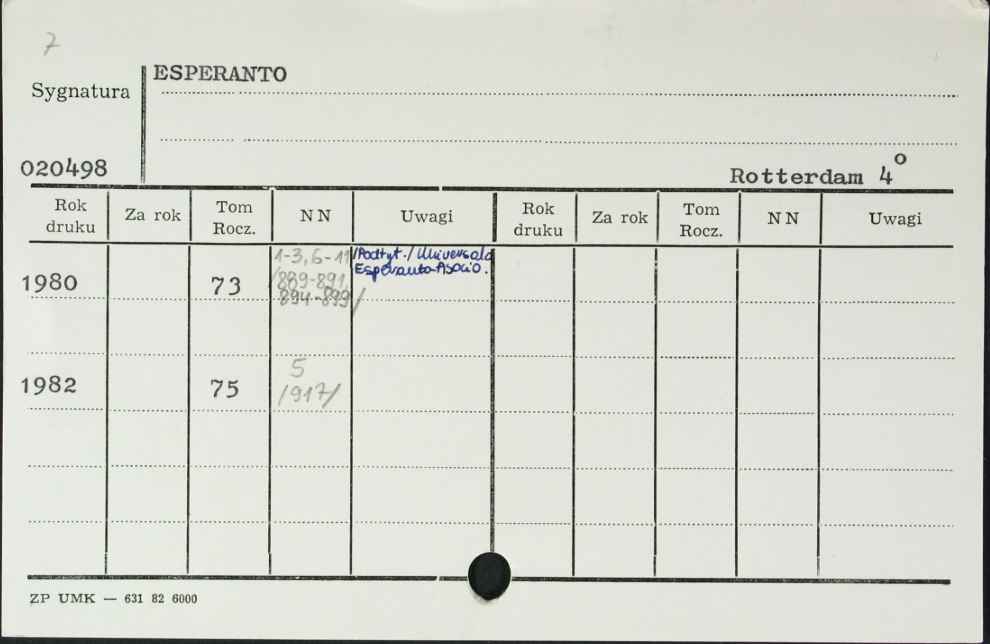 7
ESPERANTO
Sygnatura
020498
Rotterdam 4°
Rok druku Za rok Tom Rocz. NN Uwagi Rok druku Za rok Tom Rocz. NN Uwagi
1980 73 1-3,6-11 /Podtyt./Universala
/889-891, Esperanto-Asocio.
894-899/
1982 75 5
/917/
ZP UMK — 631 82 6000